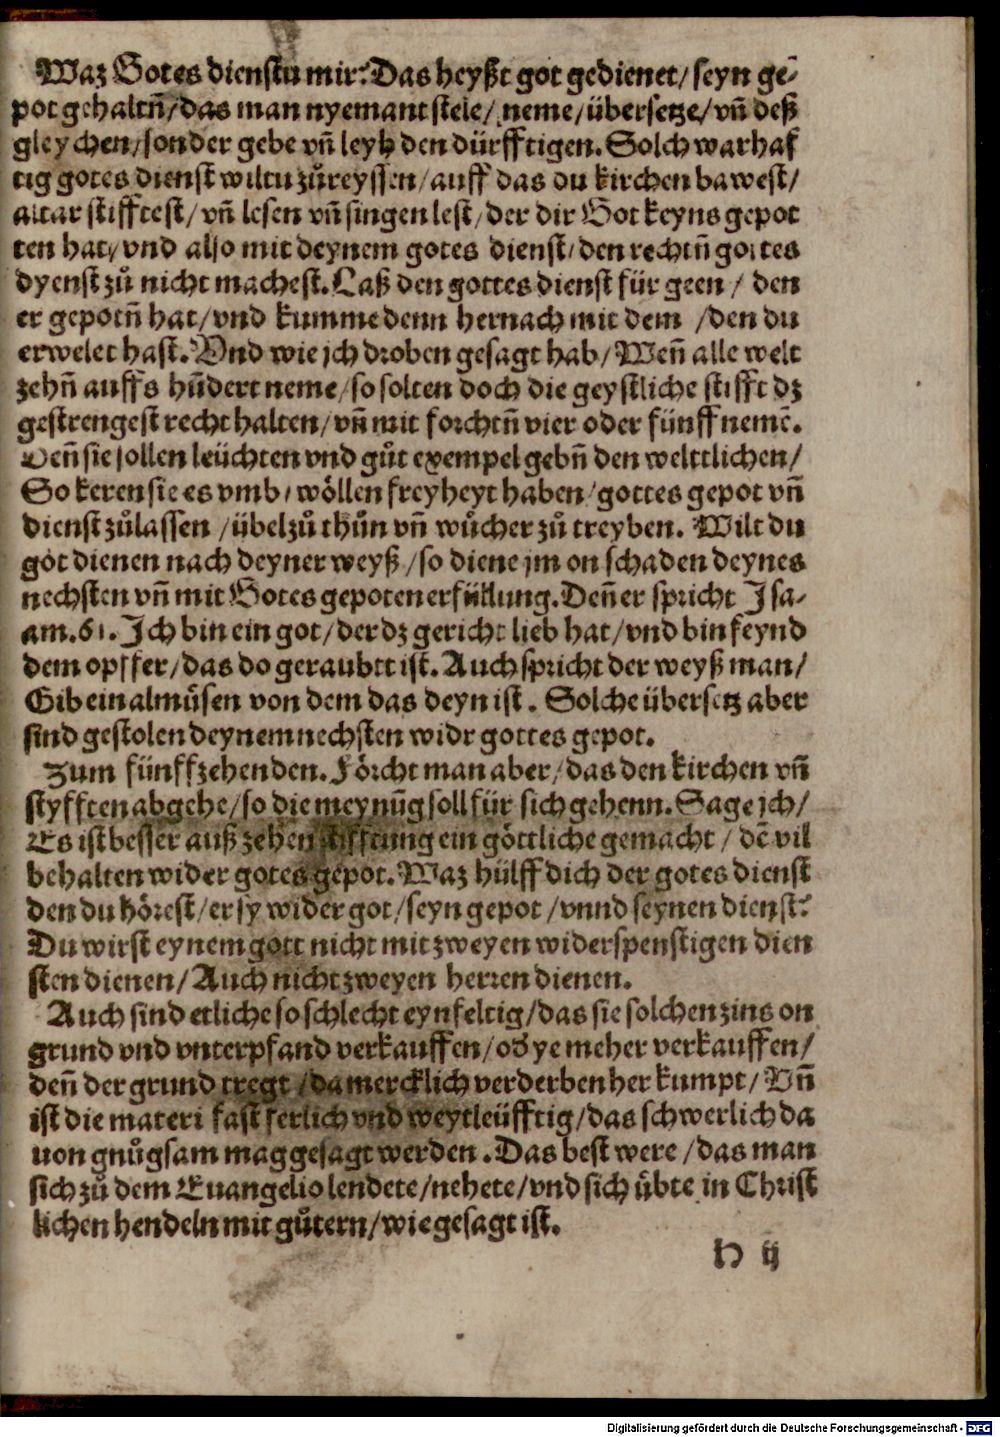 Waz Gotes dienstu mir? Das heyßt got gedienet/ seyn ge-
pot gehaltn̄/ das man nyemant stele/ neme/ übersetze/ vn̄ deß
gleychen/ sonder gebe vn̄ leyh den dürfftigen. Solch warhaf
tig gotes dienst wiltu zůreyssen/ auff das du kirchen bawest/
altar stifftest/ vn̄ lesen vn̄ singen lest/ der dir Got keyns gepot
ten hat/ vnd also mit deynem gotes dienst/ den rechtn̄ gottes
dyenst zů nicht machest. Laß den gottes dienst für geen / den
er gepotn̄ hat/ vnd kumme denn hernach mit dem /den du
erwelet hast. Vnd wie jch droben gesagt hab/ Wen̄ alle welt
zehn̄ auffs hūdert neme/ so solten doch die geystliche stifft dz
gestrengest recht halten/ vn̄ mit forchtn̄ vier oder fünff nemē.
Den̄ sie sollen leüchten vnd gůt exempel gebn̄ den welttlichen/
So keren sie es vmb/ wöllen freyheyt haben/ gottes gepot vn̄
dienst zůlassen /übel zů thůn vn̄ wůcher zů treyben. Wilt du
got dienen nach deyner weyß/ so diene jm on schaden deynes
nechsten vn̄ mit Gotes gepoten erfüllung. Den̄ er spricht Jsa-
am. 61. Jch bin ein got/ der dz gericht lieb hat/ vnd bin feynd
dem opffer/ das do geraubtt ist. Auch spricht der weyß man/
Gib ein almůsen von dem das deyn ist. Solche übersetz aber
sind gestolen deynem nechsten widr gottes gepot.
Zum fünffzehenden. Förcht man aber/ das den kirchen vn̄
styfften abgehe/ so die meynūg soll für sich gehenn. Sage jch/
Es ist besser auß zehen stifftung ein göttliche gemacht / dē vil
behalten wider gotes gepot. Waz hülff dich der gotes dienst
den du hörest/ er sy wider got/ seyn gepot /vnnd seynen dienst?
Du wirst eynem gott nicht mit zweyen widerspenstigen dien
sten dienen/ Auch nicht zweyen herren dienen.
Auch sind etliche so schlecht eynfeltig/ das sie solchen zins on
grund vnd vnterpfand verkauffen/ oď ye meher verkauffen/
den̄ der grund tregt /da mercklich verderben her kumpt/ Vn̄
ist die materi fast ferlich vnd weytleüfftig/ das schwerlich da
uon gnůgsam mag gesagt werden. Das best were /das man
sich zů dem Euangelio lendete/ nehete/ vnd sich übte in Christ
lichen hendeln mit gůtern/ wie gesagt ist.
H ij
Digitalisierung gefördert durch die Deutsche Forschungsgemeinschaft - DFG